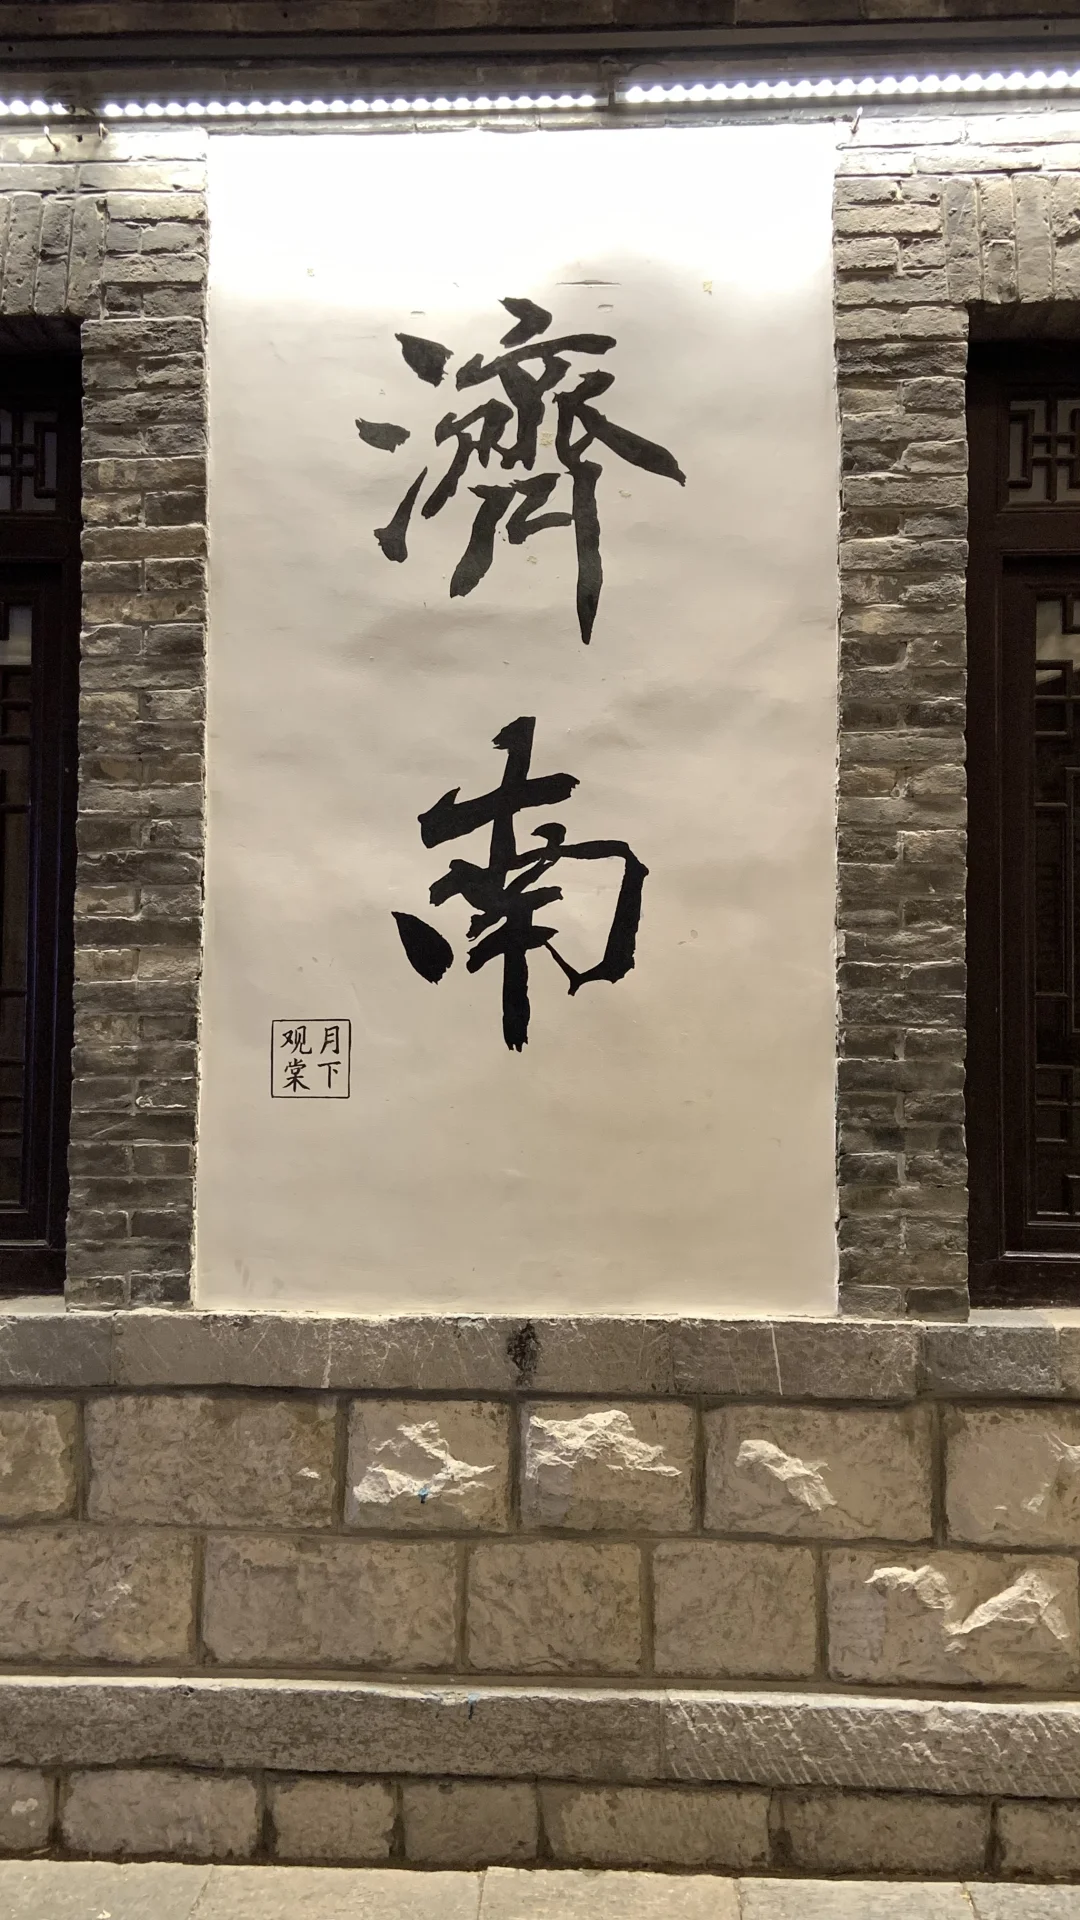 濟南
月下
观棠